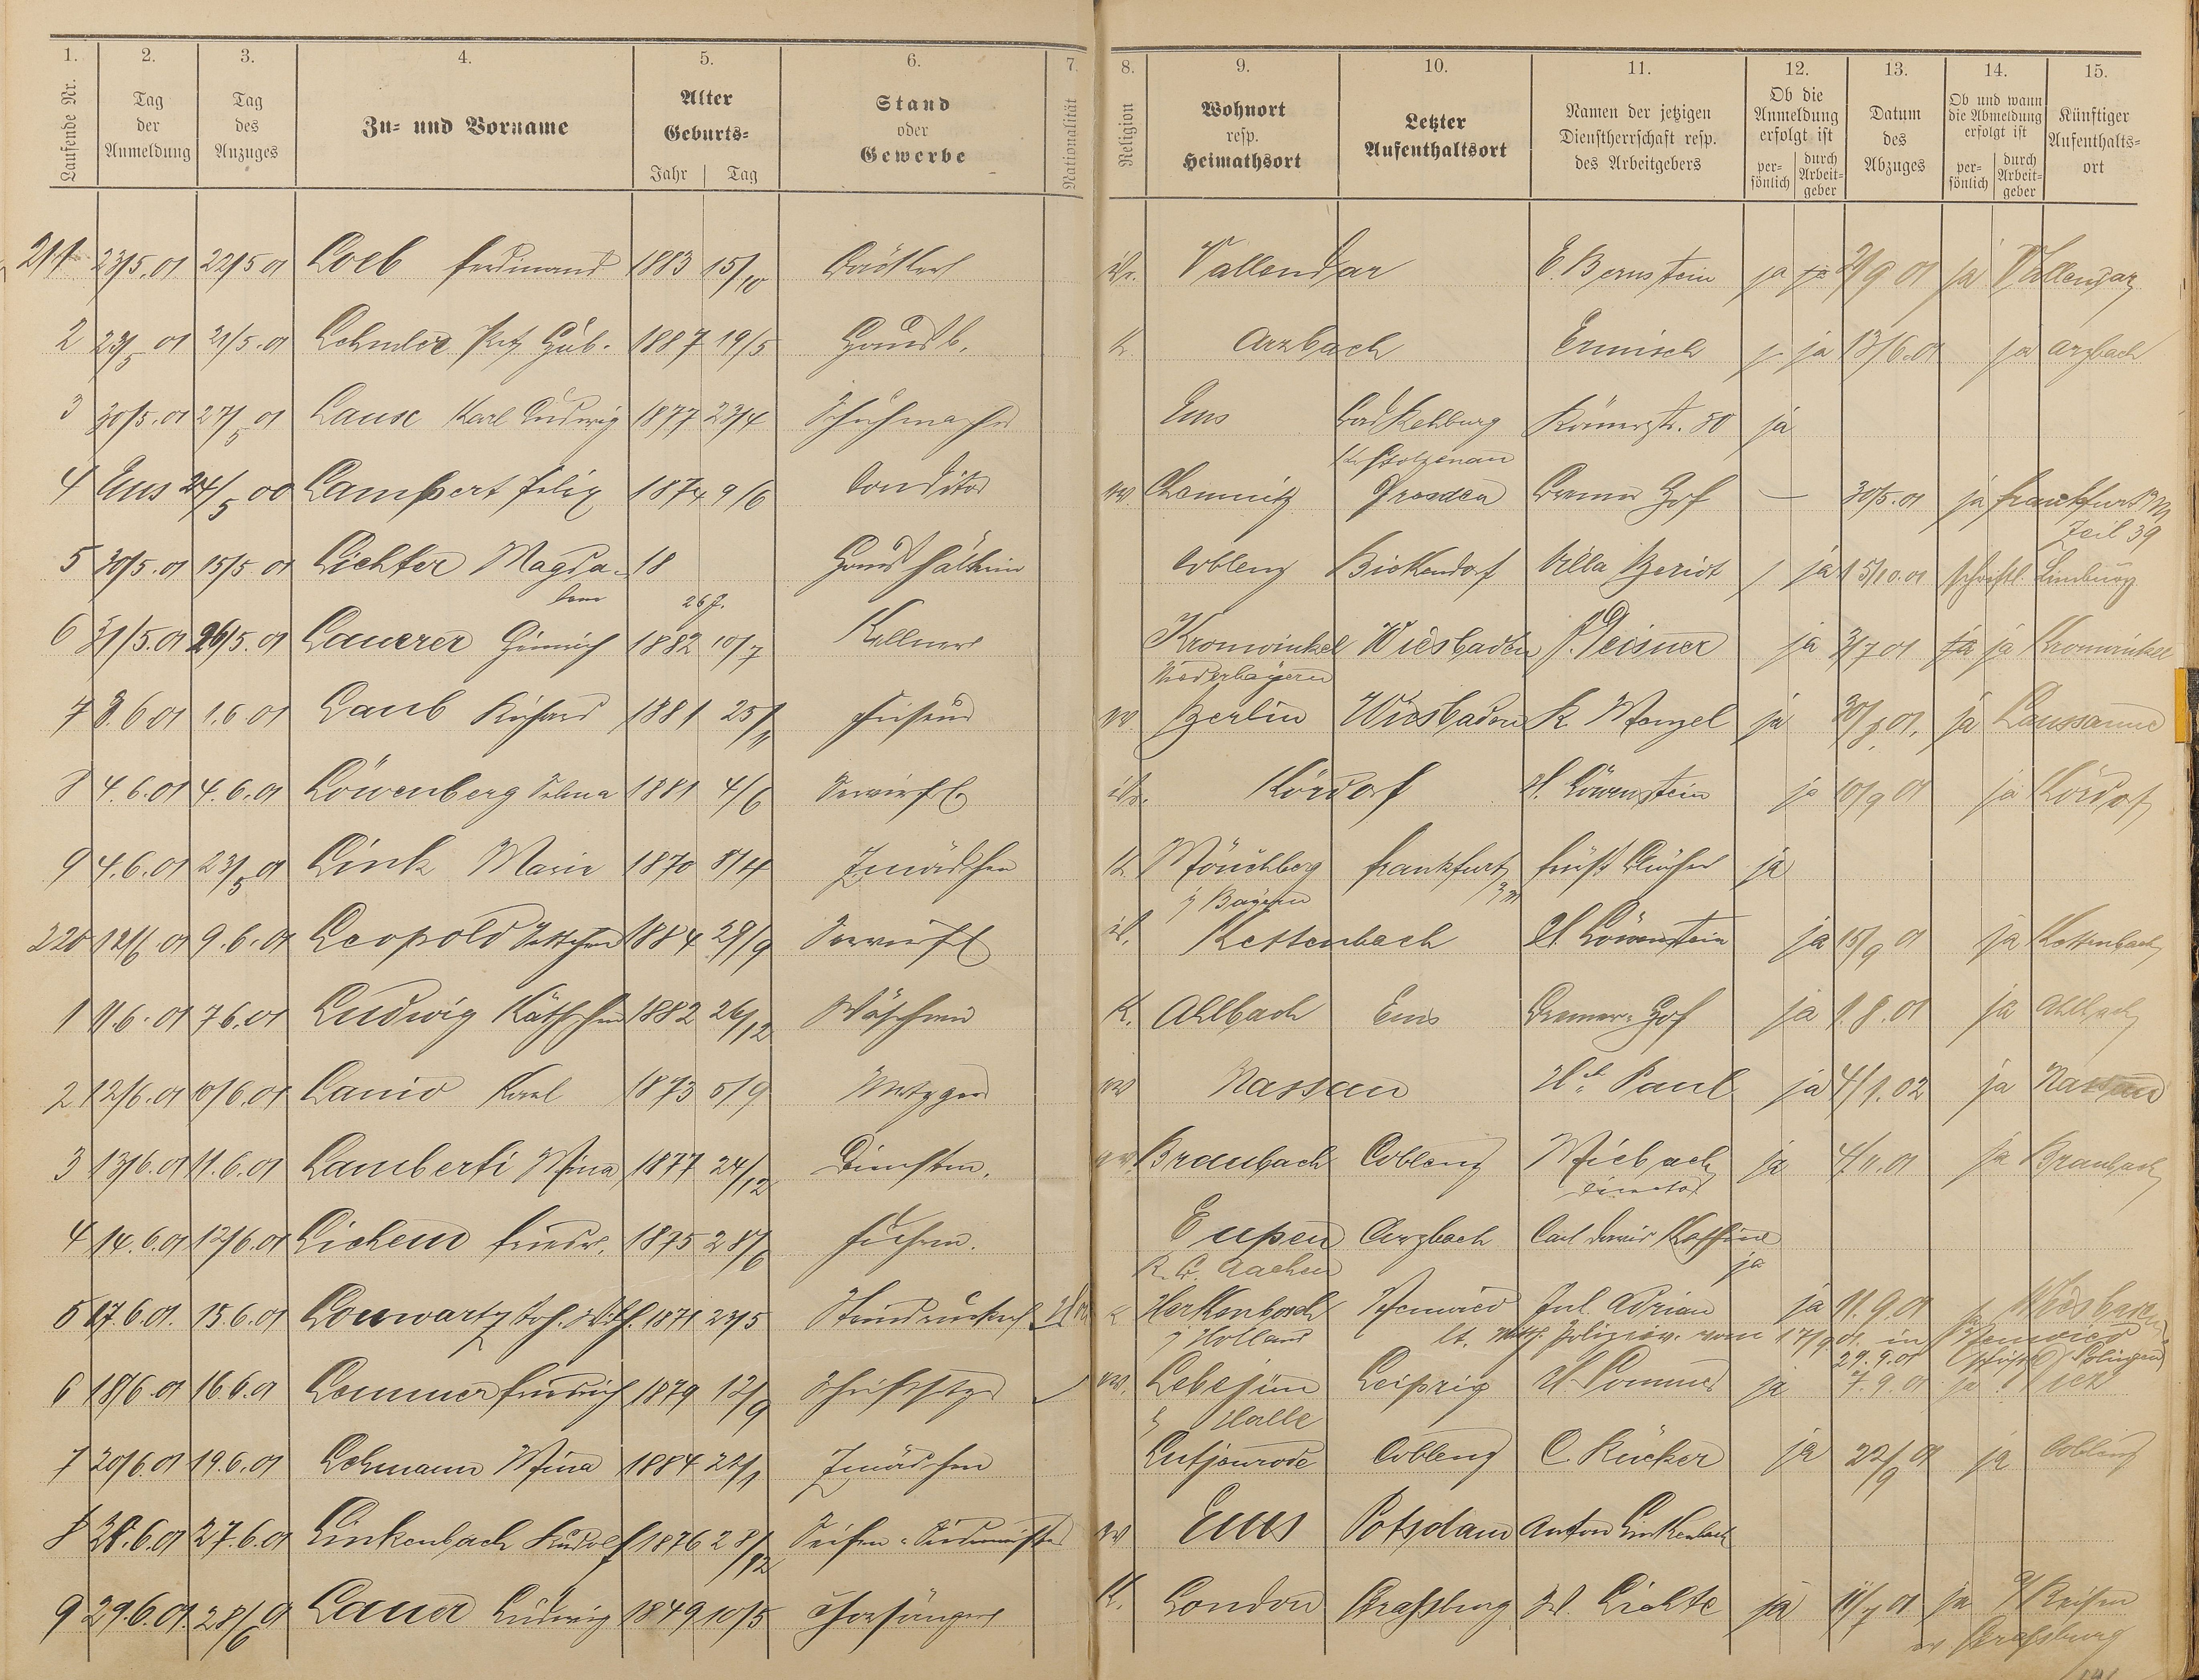 1. 2. 3. 4. 5. 6. 7. 8. 9. 10. 11. 12. 13. 14. 15.
Laufende Nr. Tag der Anmeldung Tag des Anzuges Zu- und Vorname Alter Geburts= Jahr Tag Stand oder Gewerbe Nationalität Religion Wohnort resp. Heimathsort Letzter Aufenthaltsort Namen der jetzigen Dienstherrschaft resp. des Arbeitgebers Ob die Anmeldung erfolgt ist per= sönlich durch Arbeit= geber Datum des Abzuges Ob und wann die Abmeldung erfolgt ist per= sönlich durch Arbeit= geber Künftiger Aufenthalts= ort
211 23/5.01 22/5 01 Loeb Ferdinand 1883 15/10 isr. Vallendar E. Bernstein ja ja 21/9 01 ja Vallendar
2 23/5 01 21/5.01 Lehmler 1887 19/5 Hausb. K. Arzbach Ermisch ja 13/6.01 ja Arzbach
3 30/5.01 27/5 01 Lause Karl Ludwig 1877 23/4 Schuhmacher Ems Bad Rehburg Römerstr. 50 ja
Kr. Stolzenau
4 Ems 24/5 00 Lampert Felix 1874 9/6 Conditor ev. Chemnitz Dresden Bremer Hof — 30/5.01 ja Frankfurt a M
Zeil 39
5 30/5.01 15/5 01 Lichter Magda- 18 Haushälterin Coblenz Bickendorf Villa Beriot / ja 15/10.01 schriftl. Limburg
lena 26 J.
6 31/5.01 26/5.01 Lauerer Heinrich 1882 10/7 Kellner Kronwinkel Wiesbaden P. Meisner ja 3/7 01 ja ja Kronwinkel
Niederbayern
7 3.6 01 1.6 01 Laub Richard 1881 25/11 Friseur ev. Berlin Wiesbaden R. Menzel ja ja Laussanne
8 4.6.01 4.6.01 Löwenberg Selma 1881 4/6 Servirfrl isr. Kördorf H. Löwenstein ja 10/9 01 ja Kördorf
9 4.6.01 23/5 01 Link Marie 1870 8/4 Zmädchen K. Mönchberg Frankfurt a M ja
i/ Bayern
220 12/6 01 9.6.01 Leopold Jettchen 1884 29/9 Servirfrl isr. Kettenbach H. Löwenstein ja 15/9 01 ja Kettenbach
1 11.6.01 7 6.01 Ludwig Käthchen 1882 26/12 Wäscherin K. Ahlbach Ems Bremer-Hof ja 1.8.01 ja Ahlbach
2 12/6.01 10/6.01 Lanio Karl 1873 5/9 Metzger ev Nassau Paul ja 4/1.02 ja Nassau
3 13/6.01 11.6.01 Lamberti Mina 1877 24/12 Dienstm. ev. Braubach Coblenz Miebach ja 4/11.01 ja Braubach
Director
4 14.6.01 12/6.01 Lichem Friedr. 1875 28/6 Fuhrm. Eupen Arzbach Carl David
R. B. Aachen ja
5 17.6.01. 15.6.01 Louwartz 1871 23/5 Steindrucker K Herkenbosch Neuwied Jul. Adrian ja 11.9.01 ja Wiesbaden
i/ Holland lt. vom 17/9 01. in Neuwied
29.9.01 Solingen
6 18/6.01 16.6.01 Lommer Friedrich 1879 12/9 Schriftsetzer ev. Lebejün Leipzig H Sommer ja 7.9.01 ja Diez
b/ Halle
7 20/6.01 19.6.01 Lehmann Mina 1884 22/1 Zmädchen Lutjenrode Coblenz C. Rücker ja 22/9 01 ja Coblenz
8 28.6.01 27.6.01 Linkenbach Rudolf 1876 28/12 ev Ems Potsdam Anton Linkenbach
9 29.6.01. 28/6 01 Lauer Ludwig 1849 10/5 Chorsänger K. London Straßburg Lichte ja 11/7 01 ja a/ Reisen
n. Straßburg